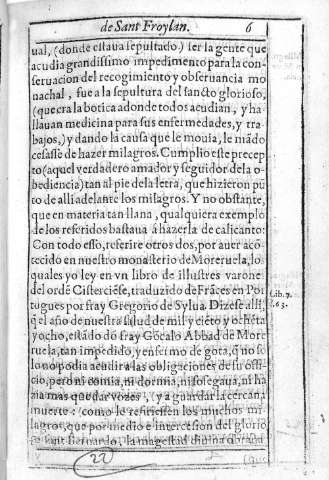 de Sant Froylan. 6
ual, (donde estaua sepultado.) ser la gente que
acudia grandissimo impedimento para la con-
seruacion del recogimiento y obseruancia mo
nachal, fue a la sepultura del sancto glorioso,
(que era la botica adonde todos acudian, y ha-
llauan medicina para sus enfermedades, y tra-
bajos,) y dando la causa que le mouia, le mãdo
cesasse de hazer milagros. Cumplio este precep
to (aquel verdadero amador y seguidor de la o-
bediencia) tan al pie de la letra, que hizieron pũ
to de alli adelante los milagros. Y no obstante,
que en materia tan llana, qualquiera exemplo
de los referidos bastaua à hazerla de calicanto:
Con todo esso, referire otros dos, por auer acõ-
tecido en nuestro monasterio de Moreruela, lo
quales yo ley en vn libro de illustres varone
del ordẽ Cisterciẽse, traduzido de Frãces en Por
tugues por fray Gregorio de Sylua. Dizese alli,
Lib. 7.
c. 63.
q̃ el año de nuestra salud de mil y ciẽto y ochẽta
y ocho, estãdo dõ fray Gõcalo Abbad de More
ruela, tan impedido, y enfermo de gota, q̃ no so
lo no podia acudir a las obligaciones de su offi-
cio, pero ni comia, ni dormia, ni sosegaua, ni ha
zia mas que dar vozes, y aguardar la cercana
muerte: como le refiriessen los muchos mi-
lagros, que por medio e intercesion del glorio
so sant Bernardo, la magestad diuina obraua
22